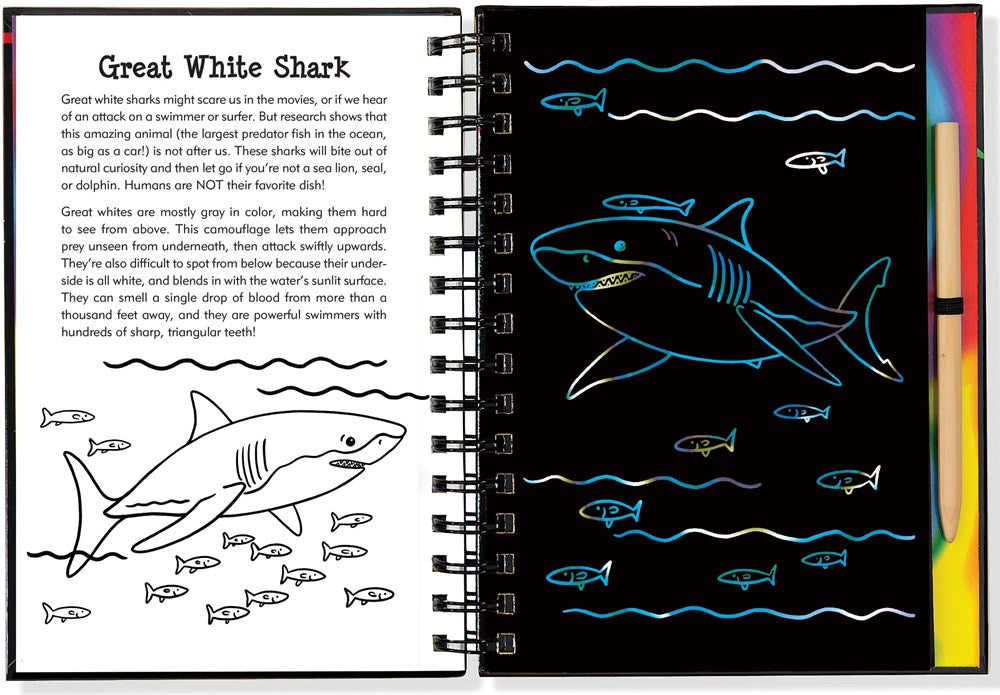 Great White Shark
Great white sharks might scare us in the movies, or if we hear
of an attack on a swimmer or surfer. But research shows that
this amazing animal (the largest predator fish in the ocean,
as big as a car!) is not after us. These sharks will bite out of
natural curiosity and then let go if you're not a sea lion, seal,
or dolphin. Humans are NOT their favorite dish!
Great whites are mostly gray in color, making them hard
to see from above. This camouflage lets them approach
prey unseen from underneath, then attack swiftly upwards.
They're also difficult to spot from below because their under-
side is all white, and blends in with the water's sunlit surface.
They can smell a single drop of blood from more than a
thousand feet away, and they are powerful swimmers with
hundreds of sharp, triangular teeth!